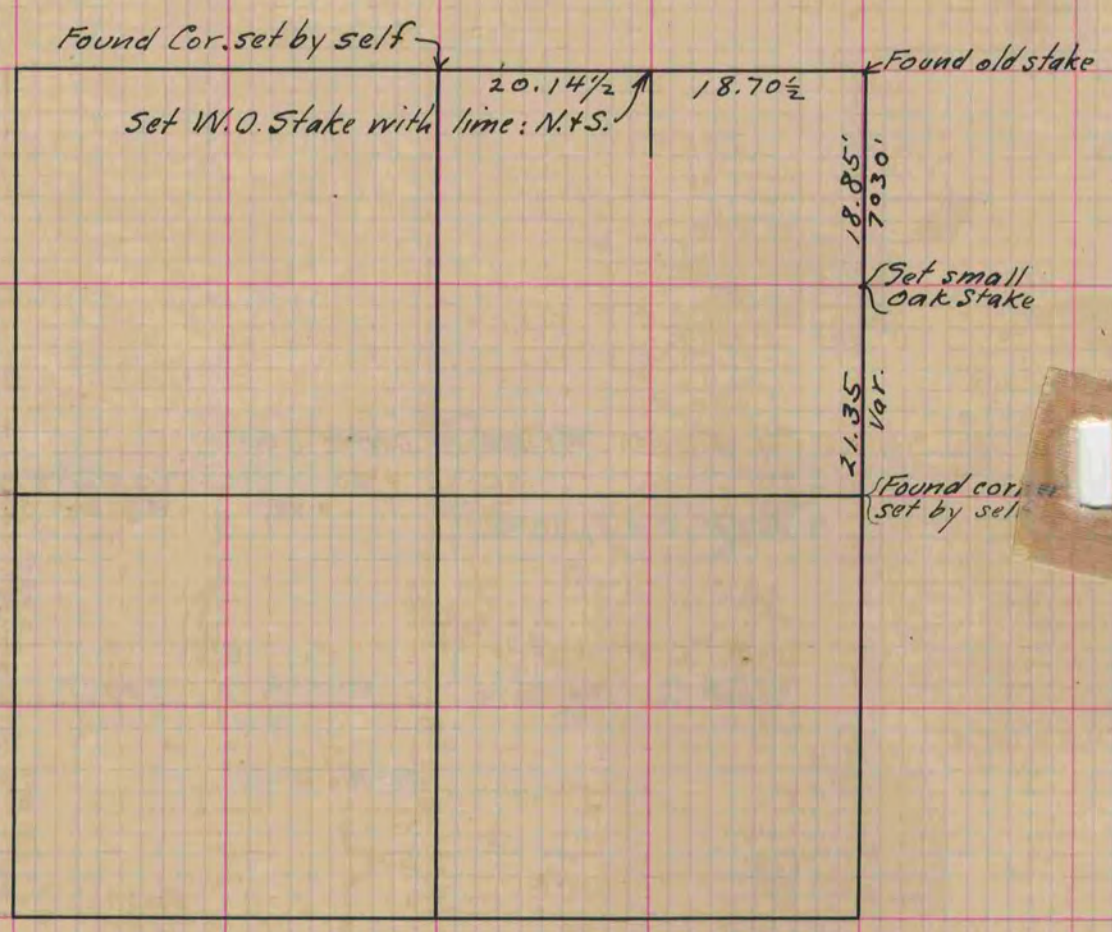 Found Cor. set by self
Found old stake
20.14½
18.70½
Set W.O. Stake with lime: N.+S.
18.85'
7030'
Set small
Oak Stake
21.35
Var.
Found corner
set by self